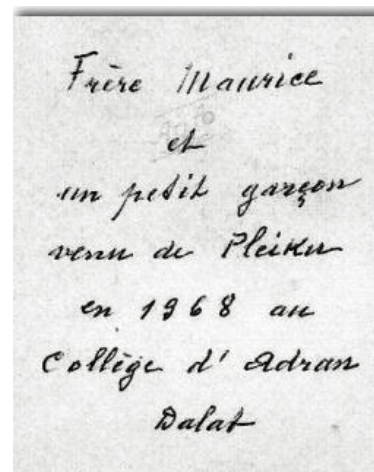 Frère Maurice
et
un petit garçon
venu de Pleiku
en 1968 au
Collège d'Adran
Dalat